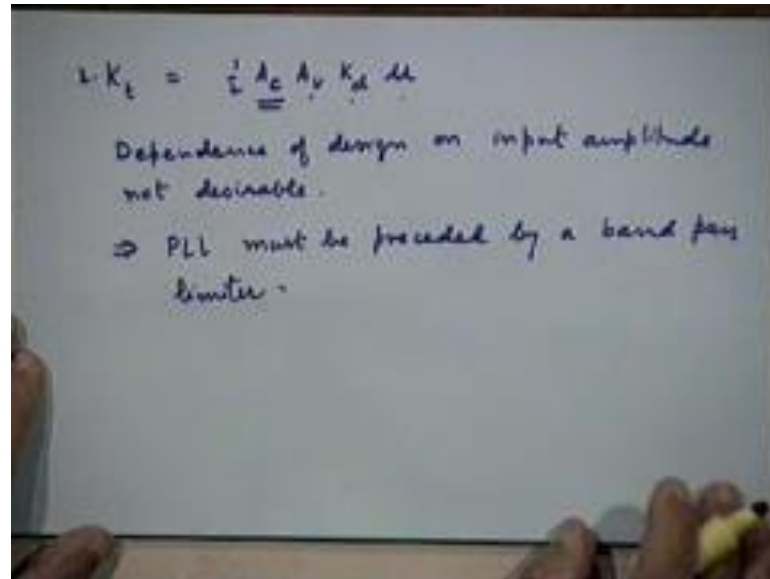 2. K_t = ½ A_c A_v K_d μ
Dependence of design on input amplitude
not desirable.
⇒ PLL must be preceded by a band pass
limiter.